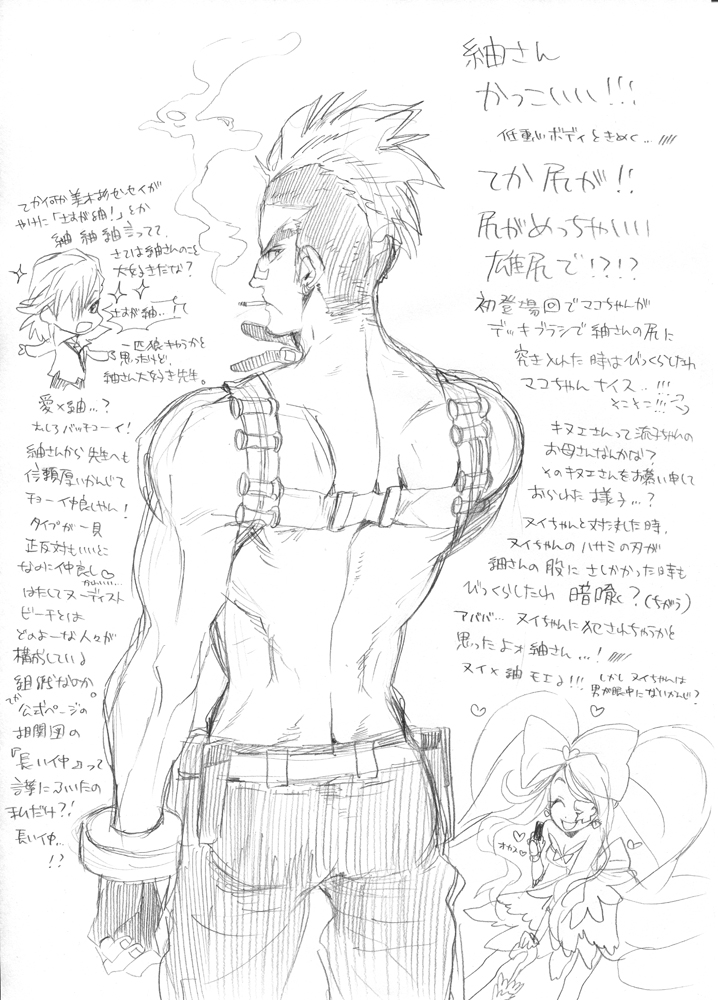 紬さん
かっこいい!!!
低重心ボディときめく…////
てか 尻が!!
尻がめっちゃいい
雄尻で!?!?
初登場回でマコちゃんが
デッキブラシで紬さんの尻に
突き入れた時はびっくらしたわ
マコちゃん ナイス..!!!
そこそこ!!!
キヌエさんって流子ちゃんの
お母さんなんかな?
そのキヌエさんをお慕い申して
おられた様子…?
ヌイちゃんと対たました時、
ヌイちゃんのハサミの刃が
紬さんの股に さしかかった時も
びっくらしたわ 暗喩と?(ちがう)
アババ… ヌイちゃんに犯されちゃうかと
思ったよォ紬さん…!////
ヌイ×紬 モエる!!!
しかし ヌイちゃんは
男が眼中にないかんじ?
オカス♡
てか何か 美木杉センセイが
やけに「さすが紬!」とか
紬 紬 紬 言ってて、
さては紬さんのこと
大好きだな?
さすが紬..!
一匹狼きゃらかと
思ったけど、
紬さん大好き先生。
愛×紬…?
むしろバッチコーイ!
紬さんから 先生へも
信頼厚いかんじで
チョー仲良しやん!
タイプが一見
正反対もいいとこ
なのに仲良し♡
かわいい…
はたしてヌーディスト
ビーチとは
どのよーな人々が
構成している
組織なのか。
てか 公式ページの
相関図の
『長い仲』って
言葉にふいたの
私だけ?!
長い仲…
!?